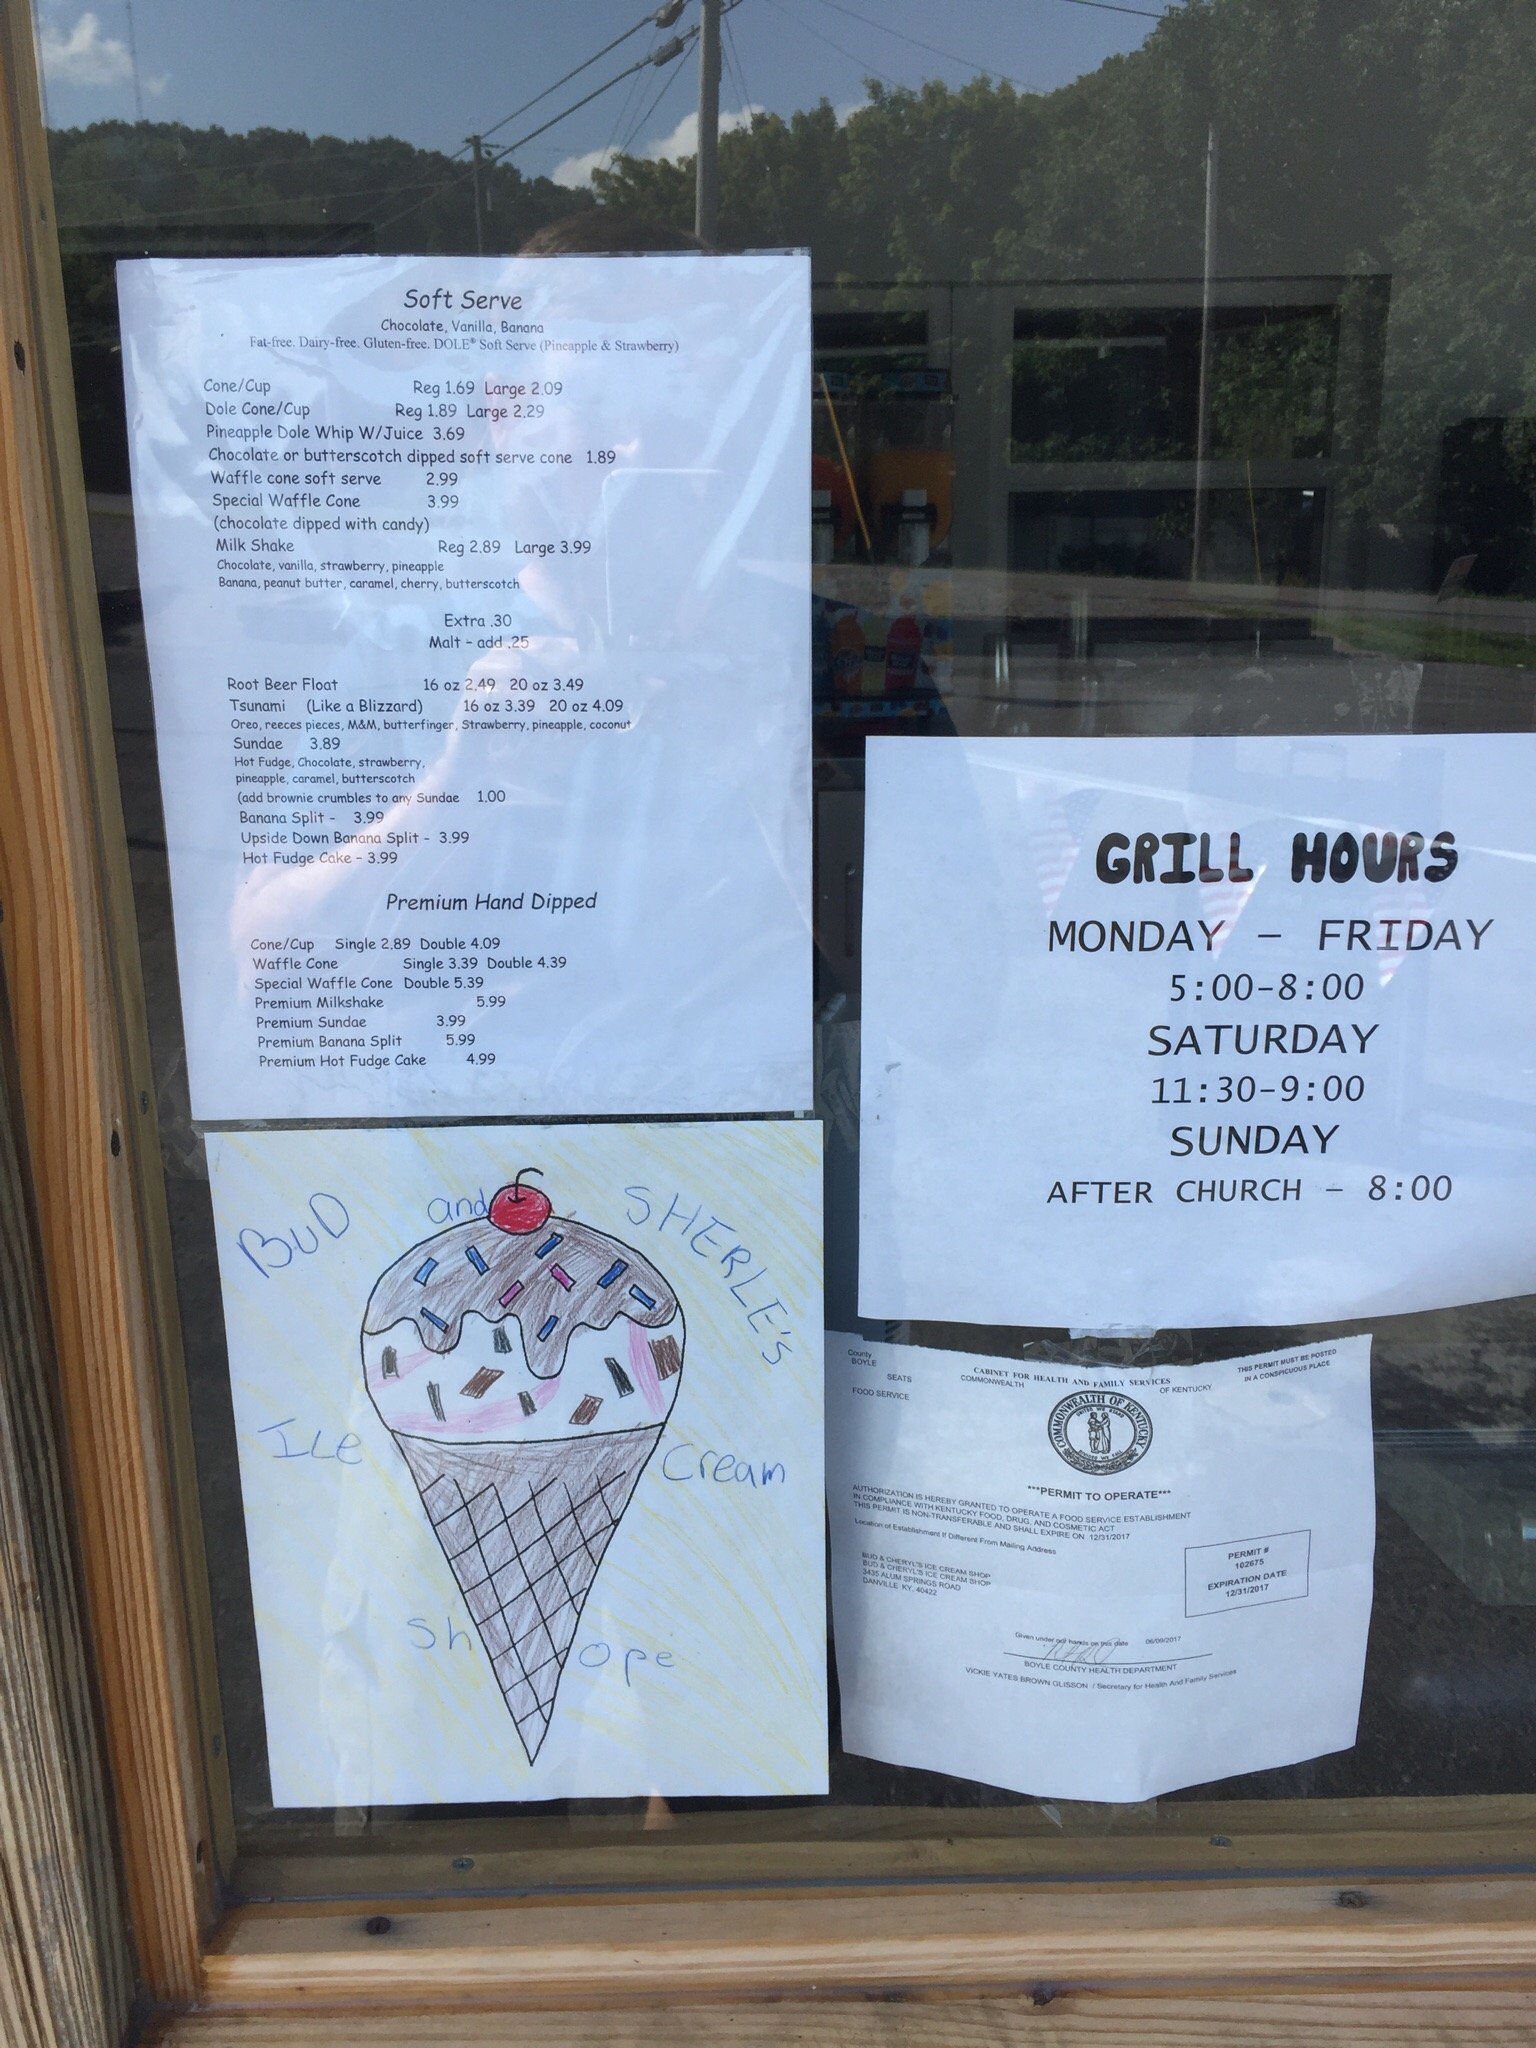 Soft Serve
Chocolate, Vanilla, Banana
Fat-free. Dairy-free. Gluten-free. DOLE® Soft Serve (Pineapple & Strawberry)
Cone/Cup Reg 1.69 Large 2.09
Dole Cone/Cup Reg 1.89 Large 2.29
Pineapple Dole Whip W/Juice 3.69
Chocolate or butterscotch dipped soft serve cone 1.89
Waffle cone soft serve 2.99
Special Waffle Cone 3.99
(chocolate dipped with candy)
Milk Shake Reg 2.89 Large 3.99
Chocolate, vanilla, strawberry, pineapple
Banana, peanut butter, caramel, cherry, butterscotch
Extra .30
Malt - add .25
Root Beer Float 16 oz 2.49 20 oz 3.49
Tsunami (Like a Blizzard) 16 oz 3.39 20 oz 4.09
Oreo, reeces pieces, M&M, butterfinger, Strawberry, pineapple, coconut
Sundae 3.89
Hot Fudge, Chocolate, strawberry,
pineapple, caramel, butterscotch
(add brownie crumbles to any Sundae 1.00
Banana Split - 3.99
Upside Down Banana Split - 3.99
Hot Fudge Cake - 3.99
Premium Hand Dipped
Cone/Cup Single 2.89 Double 4.09
Waffle Cone Single 3.39 Double 4.39
Special Waffle Cone Double 5.39
Premium Milkshake 5.99
Premium Sundae 3.99
Premium Banana Split 5.99
Premium Hot Fudge Cake 4.99
GRILL HOURS
MONDAY - FRIDAY
5:00-8:00
SATURDAY
11:30-9:00
SUNDAY
AFTER CHURCH - 8:00
BUD and SHERLE'S
Ice Cream
Sh ope
County
BOYLE
SEATS
FOOD SERVICE
CABINET FOR HEALTH AND FAMILY SERVICES
COMMONWEALTH OF KENTUCKY
THIS PERMIT MUST BE POSTED
IN A CONSPICUOUS PLACE
COMMONWEALTH OF KENTUCKY
***PERMIT TO OPERATE***
AUTHORIZATION IS HEREBY GRANTED TO OPERATE A FOOD SERVICE ESTABLISHMENT
IN COMPLIANCE WITH KENTUCKY FOOD, DRUG, AND COSMETIC ACT
THIS PERMIT IS NON-TRANSFERABLE AND SHALL EXPIRE ON 12/31/2017
Location of Establishment If Different From Mailing Address
BUD & CHERYL'S ICE CREAM SHOP
BUD & CHERYL'S ICE CREAM SHOP
3435 ALUM SPRINGS ROAD
DANVILLE KY, 40422
PERMIT #
102675
EXPIRATION DATE
12/31/2017
Given under our hands on this date 06/09/2017
BOYLE COUNTY HEALTH DEPARTMENT
VICKIE YATES BROWN GLISSON / Secretary for Health And Family Services